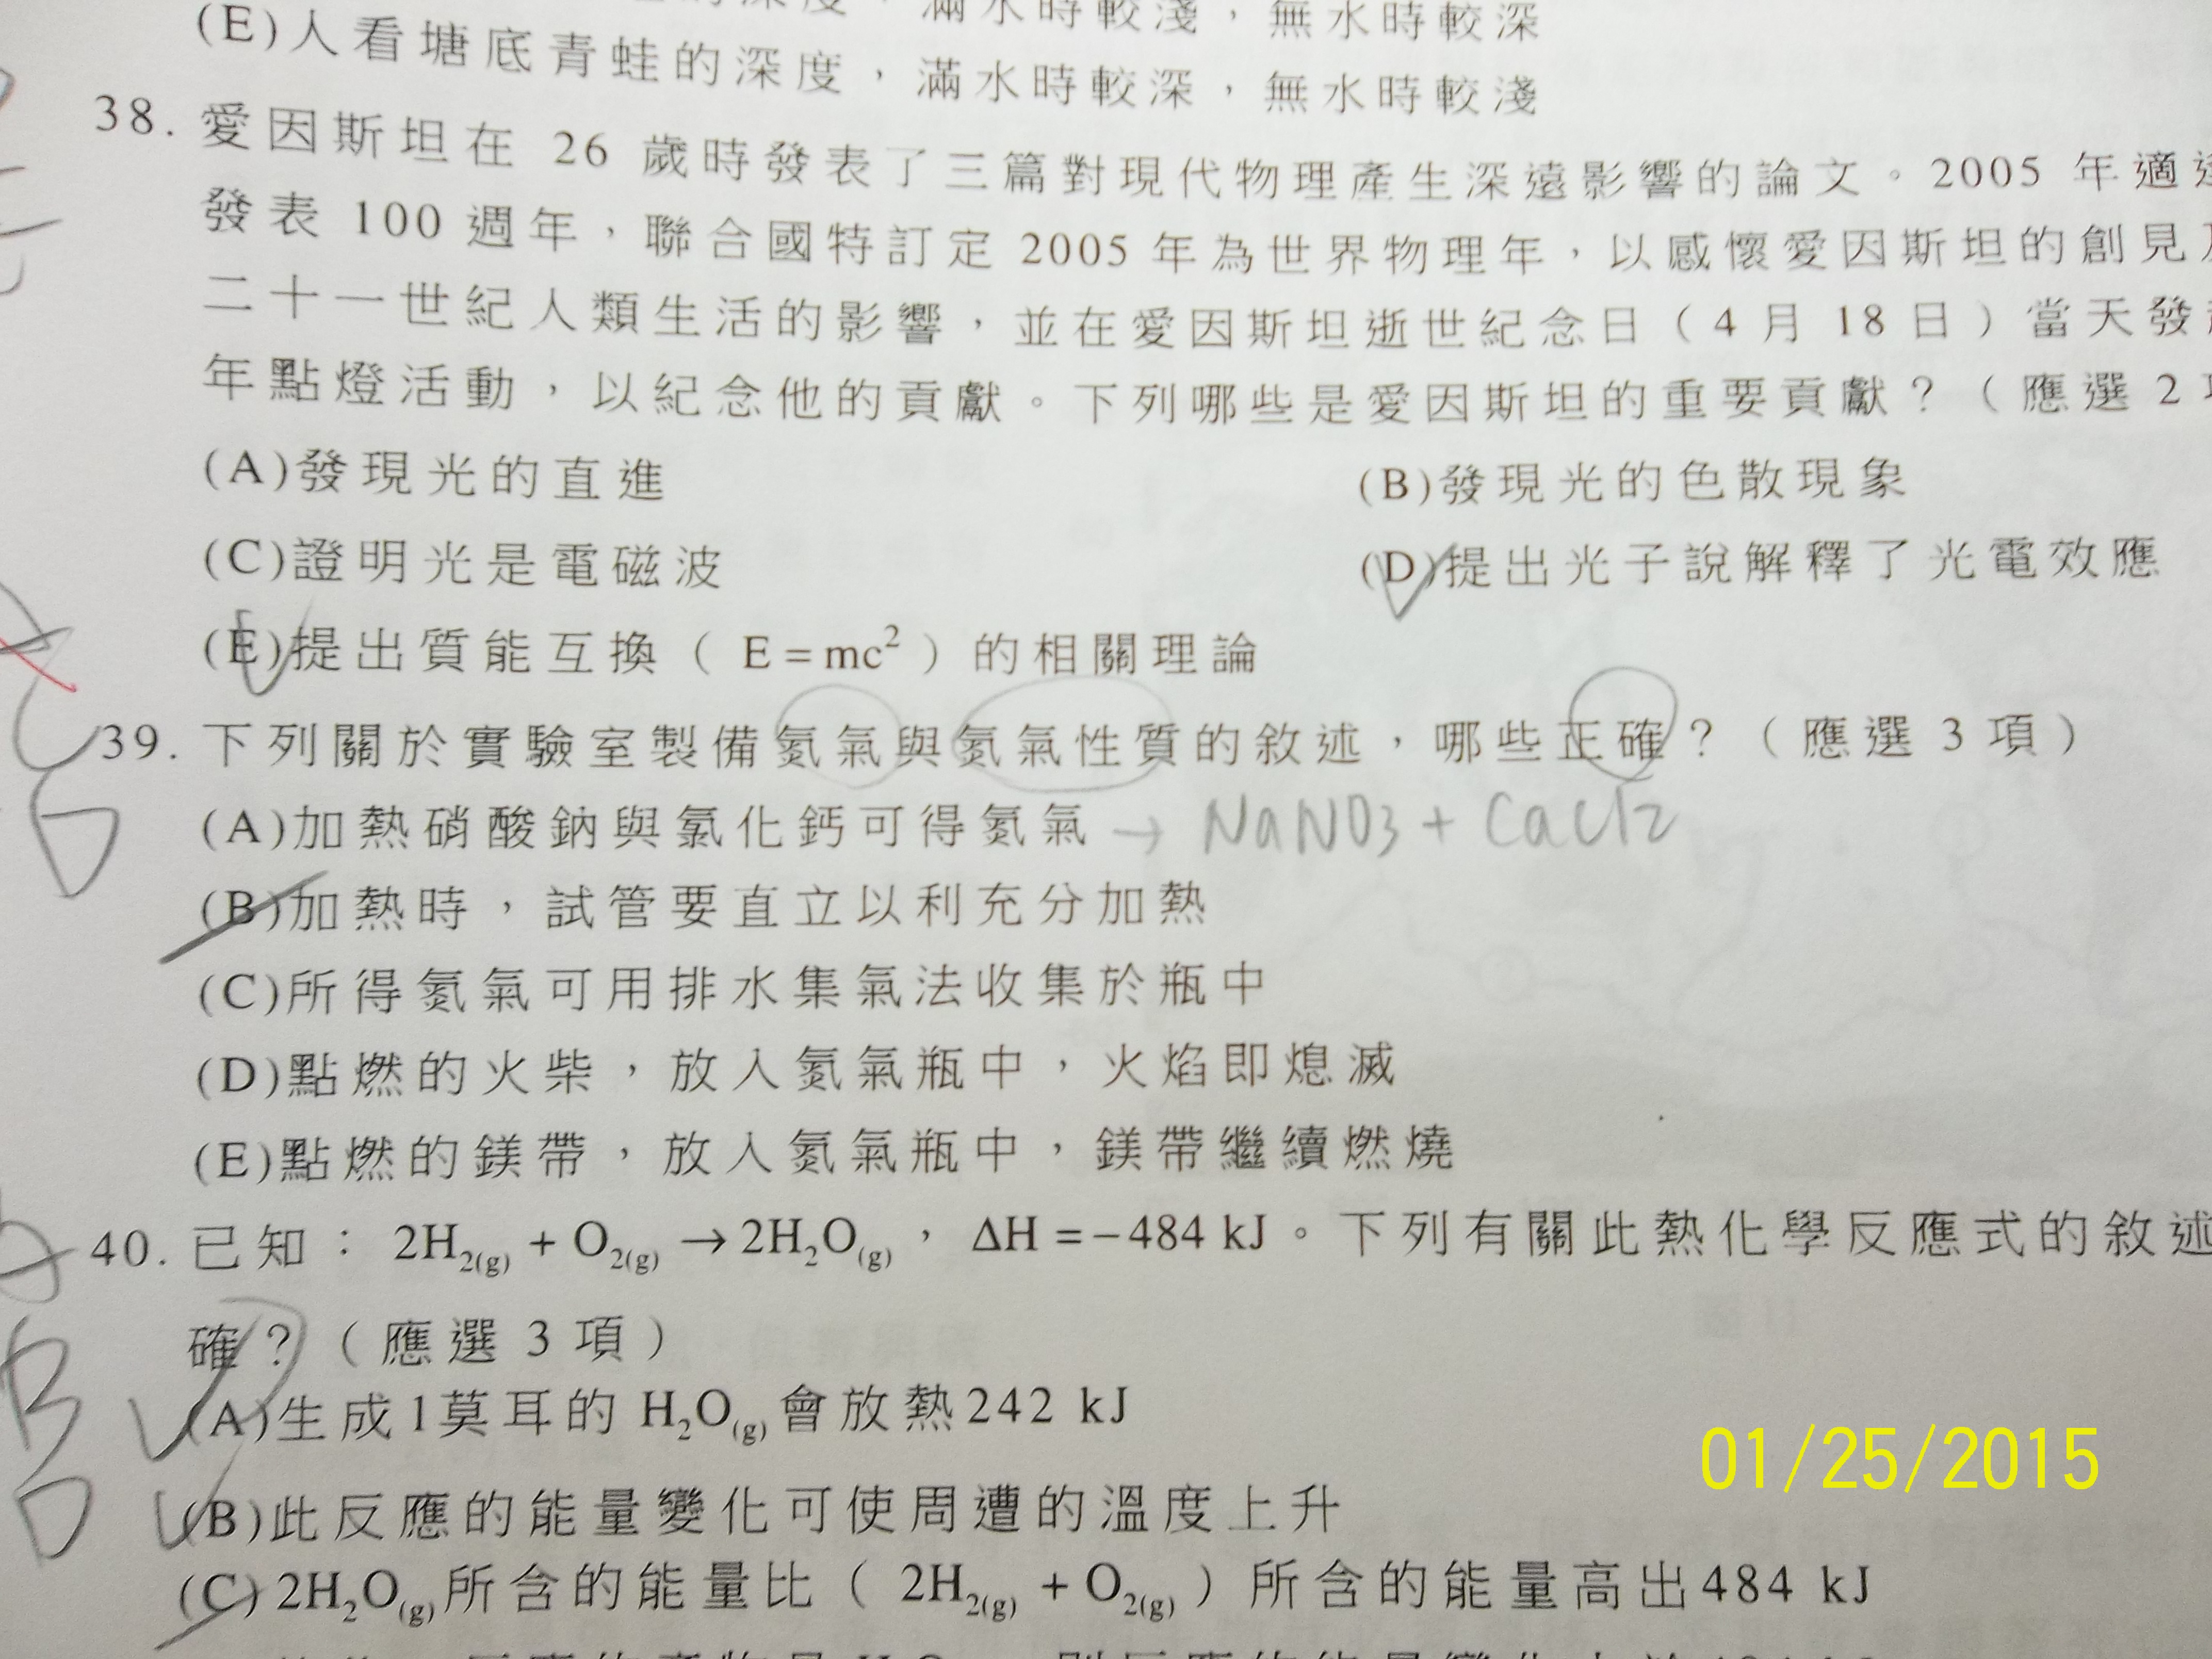 的深度，滿水時較淺，無水時較深
(E)人看塘底青蛙的深度，滿水時較深，無水時較淺
38. 愛因斯坦在 26 歲時發表了三篇對現代物理產生深遠影響的論文。2005 年適逢
發表 100 週年，聯合國特訂定 2005 年為世界物理年，以感懷愛因斯坦的創見
二十一世紀人類生活的影響，並在愛因斯坦逝世紀念日（4 月 18 日）當天發
年點燈活動，以紀念他的貢獻。下列哪些是愛因斯坦的重要貢獻？（應選 2
(A)發現光的直進
(B)發現光的色散現象
(C)證明光是電磁波
(D)提出光子說解釋了光電效應
(E)提出質能互換（ E=mc² ）的相關理論
39. 下列關於實驗室製備氮氣與氮氣性質的敘述，哪些正確？（應選 3 項）
(A)加熱硝酸鈉與氯化鈣可得氮氣 → NaNO3 + CaCl2
(B)加熱時，試管要直立以利充分加熱
(C)所得氮氣可用排水集氣法收集於瓶中
(D)點燃的火柴，放入氮氣瓶中，火焰即熄滅
(E)點燃的鎂帶，放入氮氣瓶中，鎂帶繼續燃燒
40. 已知： 2H₂(g) + O₂(g) → 2H₂O(g)， ΔH =−484 kJ。下列有關此熱化學反應式的敘述
確？（應選 3 項）
(A)生成1莫耳的 H₂O(g)會放熱242 kJ
(B)此反應的能量變化可使周遭的溫度上升
(C) 2H₂O(g)所含的能量比（ 2H₂(g) + O₂(g) ）所含的能量高出484 kJ
B
D
01/25/2015